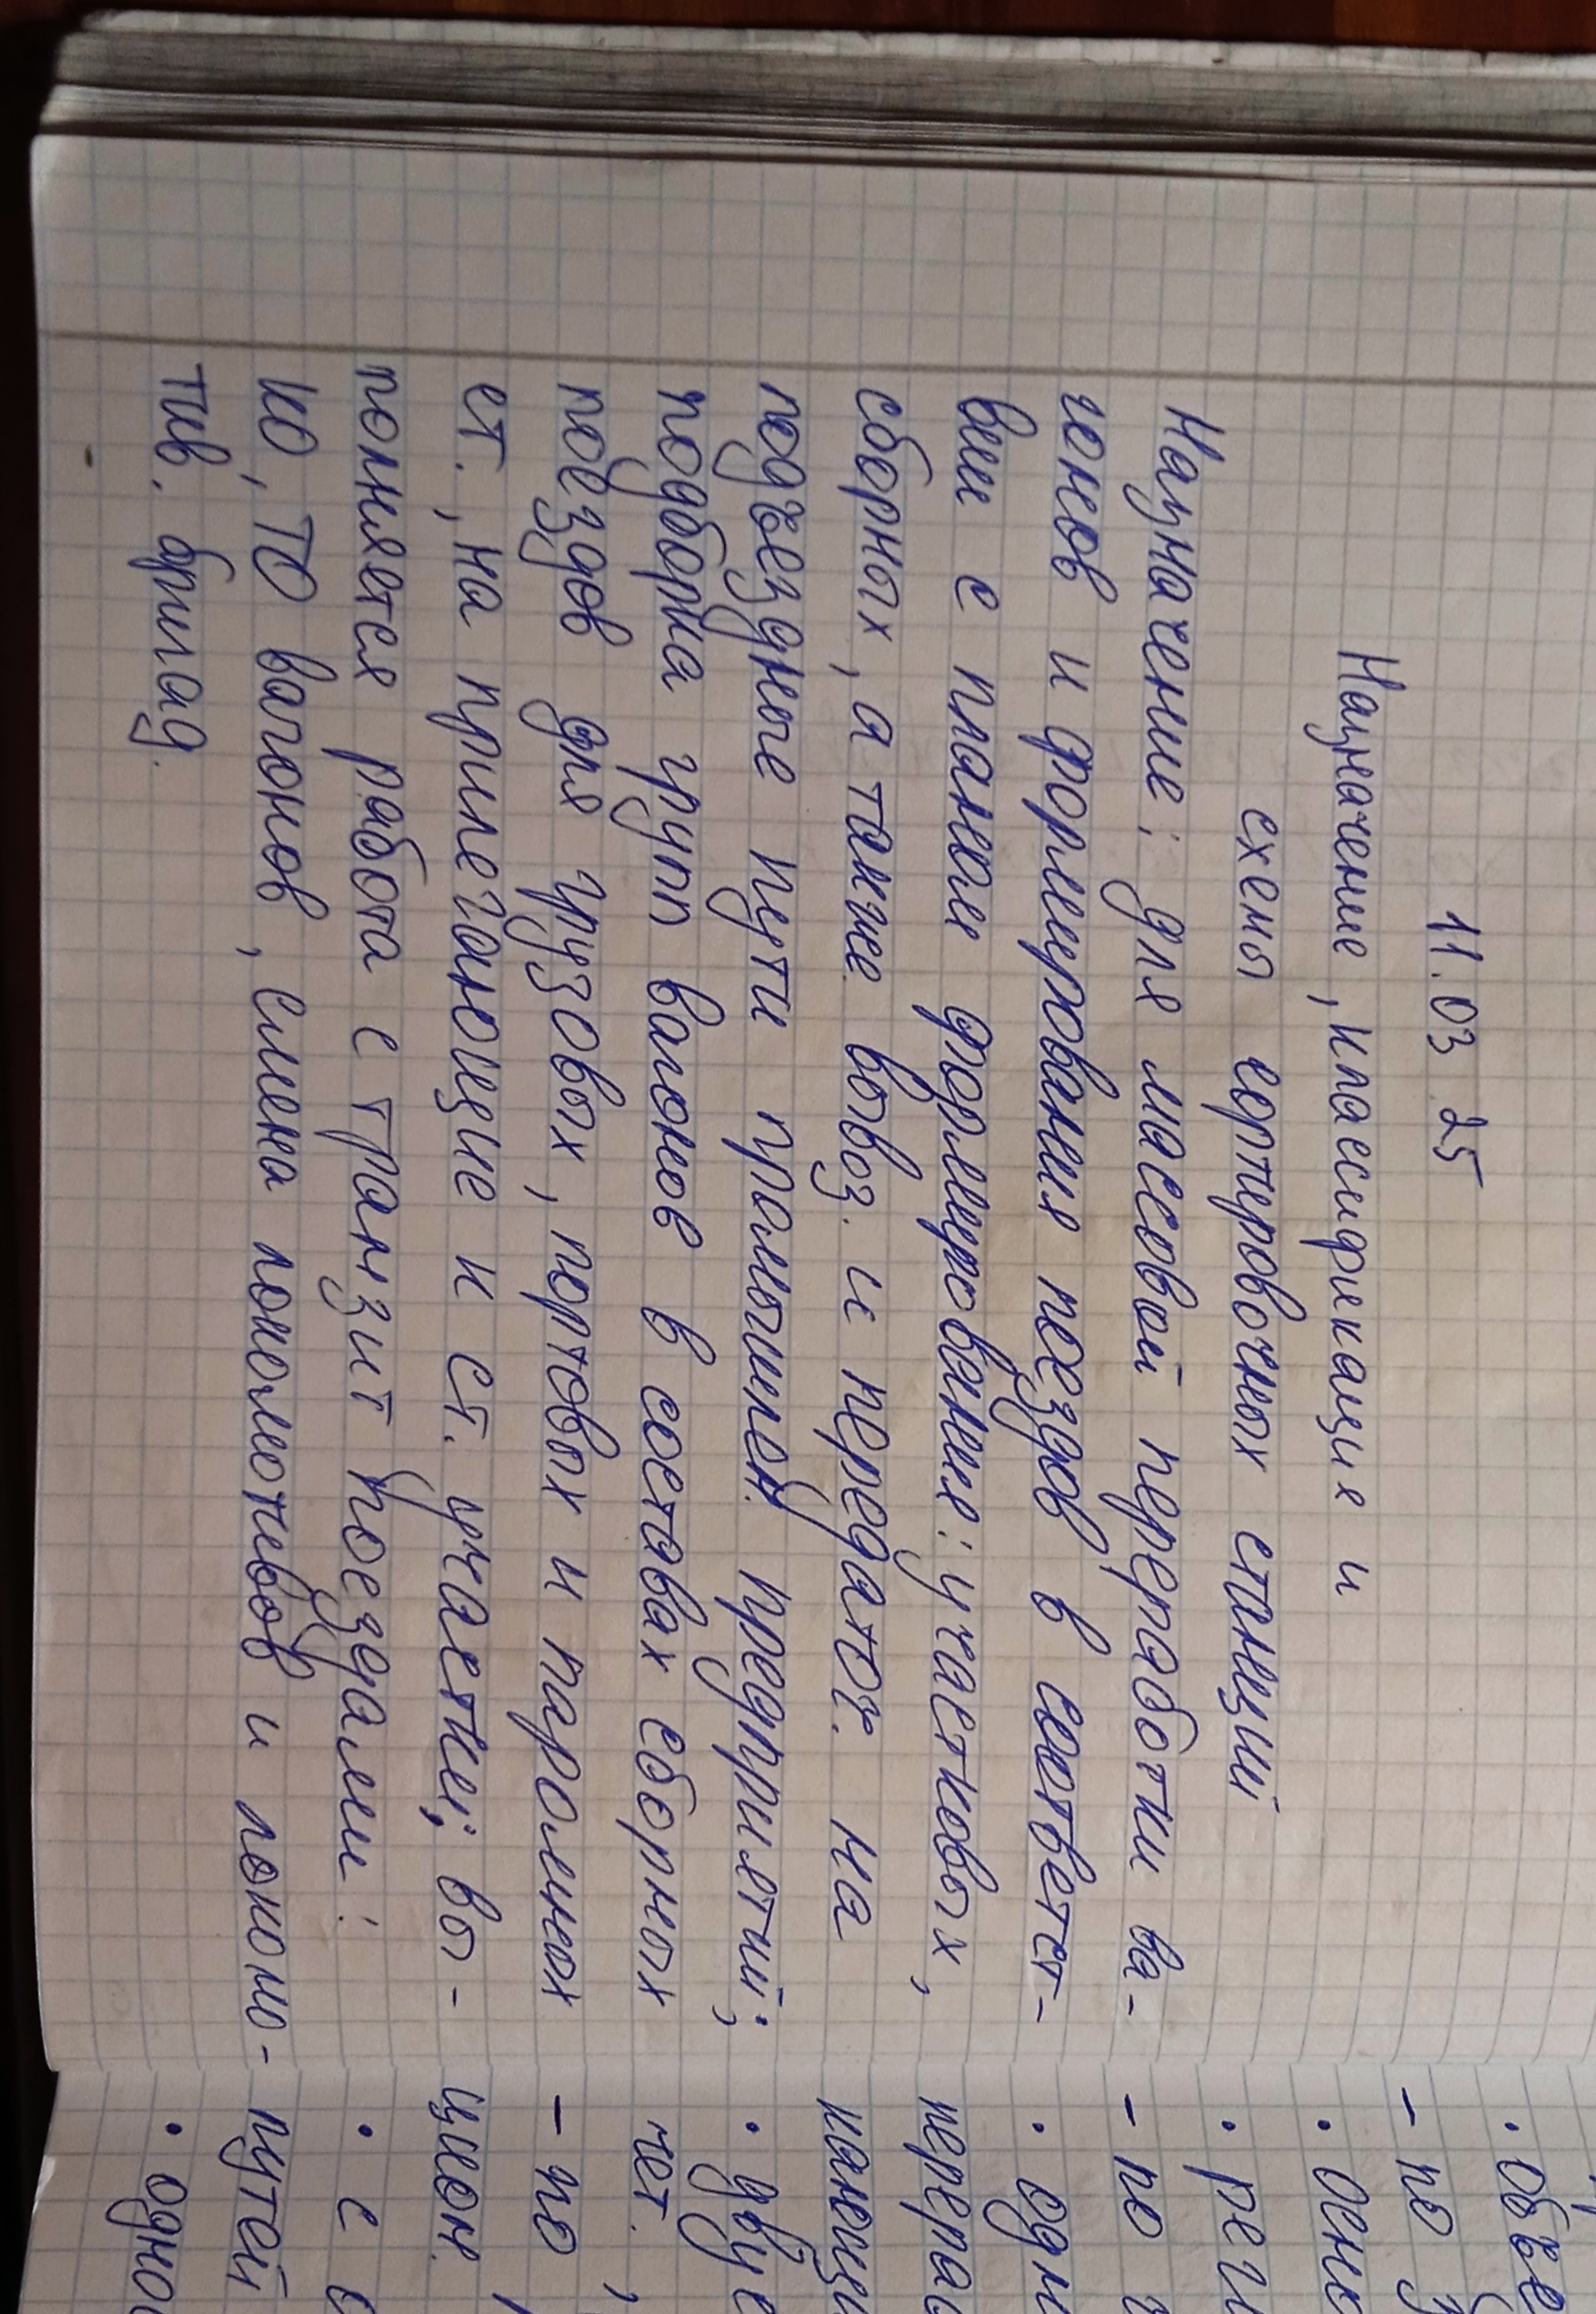 11.03 25
Назначение, классификация и
схемы сортировочных станций
Назначение: для массовой переработки ва-
гонов и формирования поездов в соответст-
вии с планом формирования: участковых,
сборных, а также вывоз. и передаточ. на
подъездные пути промышлен. предприятий;
подборка групп вагонов в составах сборных
поездов для грузовых, портовых и паромных
ст., на прилегающие к ст. участки; вы-
полняется работа с транзит поездами:
КО, ТО вагонов, смена локомотивов и локомо-
тив. бригад.
• Объе
- по
• осно
• реги
- по
• одн
перера
• двус
чет.
- по
цион.
• с
путей
• одно